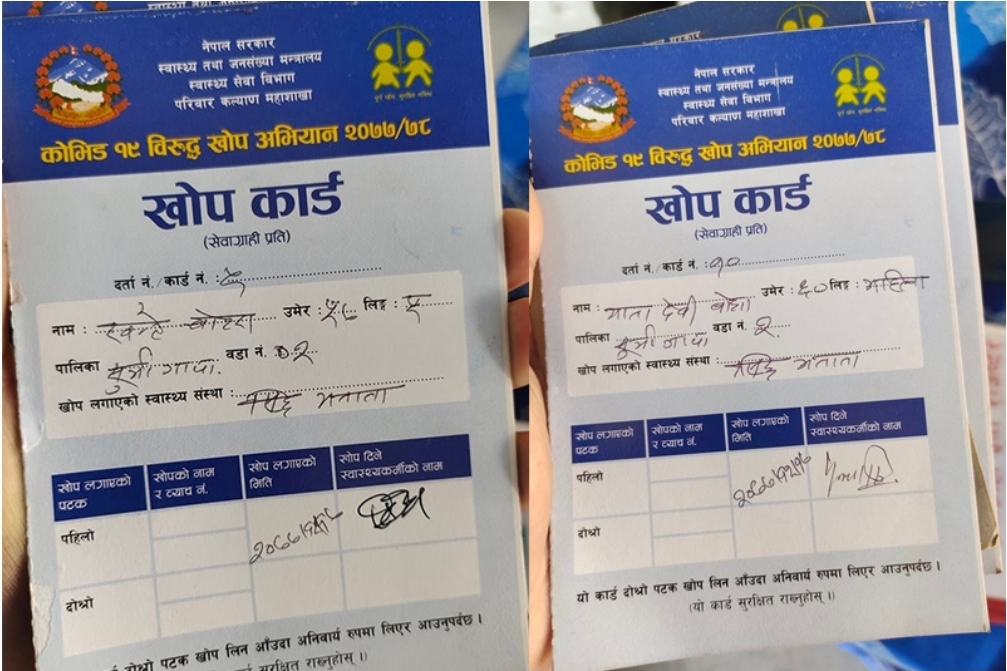 नेपाल सरकार
स्वास्थ्य तथा जनसंख्या मन्त्रालय
स्वास्थ्य सेवा विभाग
परिवार कल्याण महाशाखा
कोभिड १९ विरुद्ध खोप अभियान २०७७/७८
खोप कार्ड
(सेवाग्राही प्रति)
दर्ता नं. / कार्ड नं. :
नाम : उमेर : लिङ्ग :
पालिका वडा नं.
खोप लगाएको स्वास्थ्य संस्था :
खोप लगाएको पटक
खोपको नाम र व्याच नं.
खोप लगाएको मिति
खोप दिने स्वास्थ्यकर्मीको नाम
पहिलो
दोश्रो
दोश्रो पटक खोप लिन आँउदा अनिवार्य रुपमा लिएर आउनुपर्दछ ।
सुरक्षित राख्नुहोस् ।)
नेपाल सरकार
स्वास्थ्य तथा जनसंख्या मन्त्रालय
स्वास्थ्य सेवा विभाग
परिवार कल्याण महाशाखा
कोभिड १९ विरुद्ध खोप अभियान २०७७/७८
खोप कार्ड
(सेवाग्राही प्रति)
दर्ता नं. / कार्ड नं. : १०
नाम : माता देवी उमेर : ६० लिङ्ग : महिला
पालिका वडा नं. २
खोप लगाएको स्वास्थ्य संस्था :
खोप लगाएको पटक
खोपको नाम र व्याच नं.
खोप लगाएको मिति
खोप दिने स्वास्थ्यकर्मीको नाम
पहिलो
दोश्रो
यो कार्ड दोश्रो पटक खोप लिन आँउदा अनिवार्य रुपमा लिएर आउनुपर्दछ ।
(यो कार्ड सुरक्षित राख्नुहोस् ।)